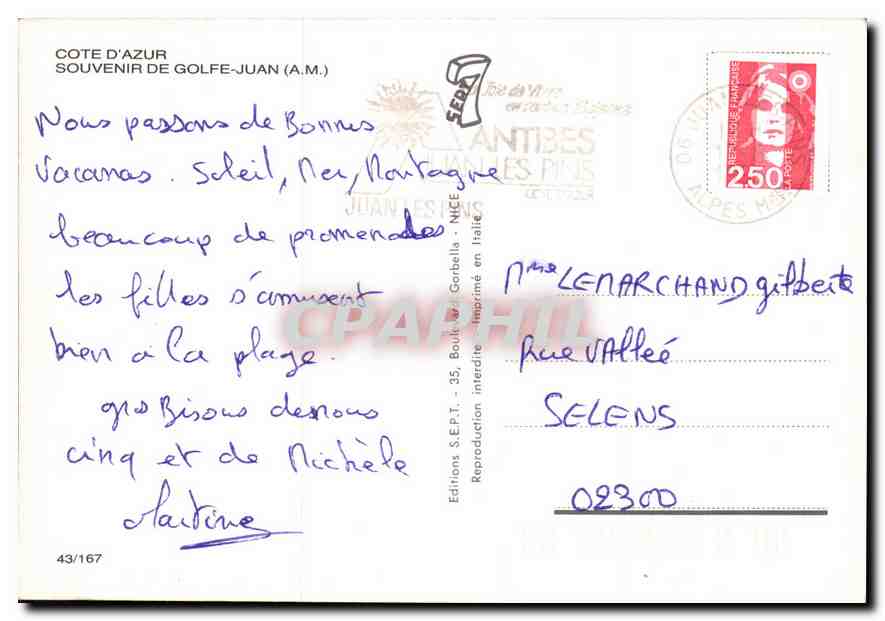 COTE D'AZUR
SOUVENIR DE GOLFE-JUAN (A.M.)
Nous passons de Bonnes
vacances. Soleil, Mer, Montagne
beaucoup de promenades
les filles s'amusent
bien à la plage.
gros Bisous de nous
cinq et de Michèle
Martine
43/167
SEPT
Joie de Vivre
ANTIBES
JUAN-LES-PINS
COTE D'AZUR
JUAN LES PINS
Editions S.E.P.T. - 35, Boulevard Gorbella - NICE
Reproduction interdite - Imprimé en Italie
06 JUAN LES PINS
ALPES Mmes
REPUBLIQUE FRANÇAISE
2,50
LA POSTE
Mme LEMARCHAND gilberte
Rue VAlleé
SELENS
02300
CPAPHIL